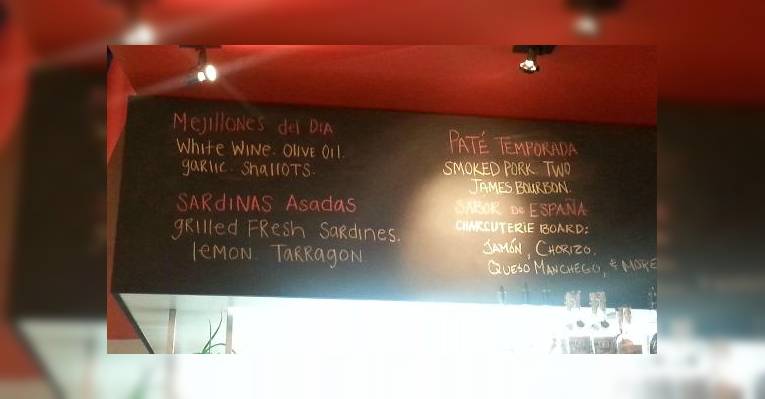 Mejillones del Dia
White Wine. Olive Oil.
garlic. Shallots.
SARdiNAS Asadas
grilled FResh Sardines.
lemon. Tarragon
PATÉ TEMPORADA
SMOKED PORK. TWO
JAMES BOURBON.
SABOR DE ESPAÑA
CHARCUTERIE BOARD:
JAMÓN, CHORIZO,
QUESO MANCHEGO, & MORE